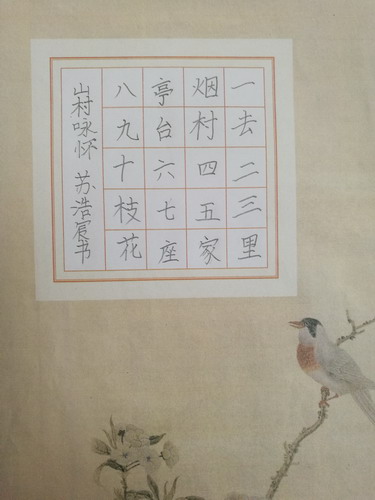 一去二三里
烟村四五家
亭台六七座
八九十枝花
山村咏怀 苏浩宸书